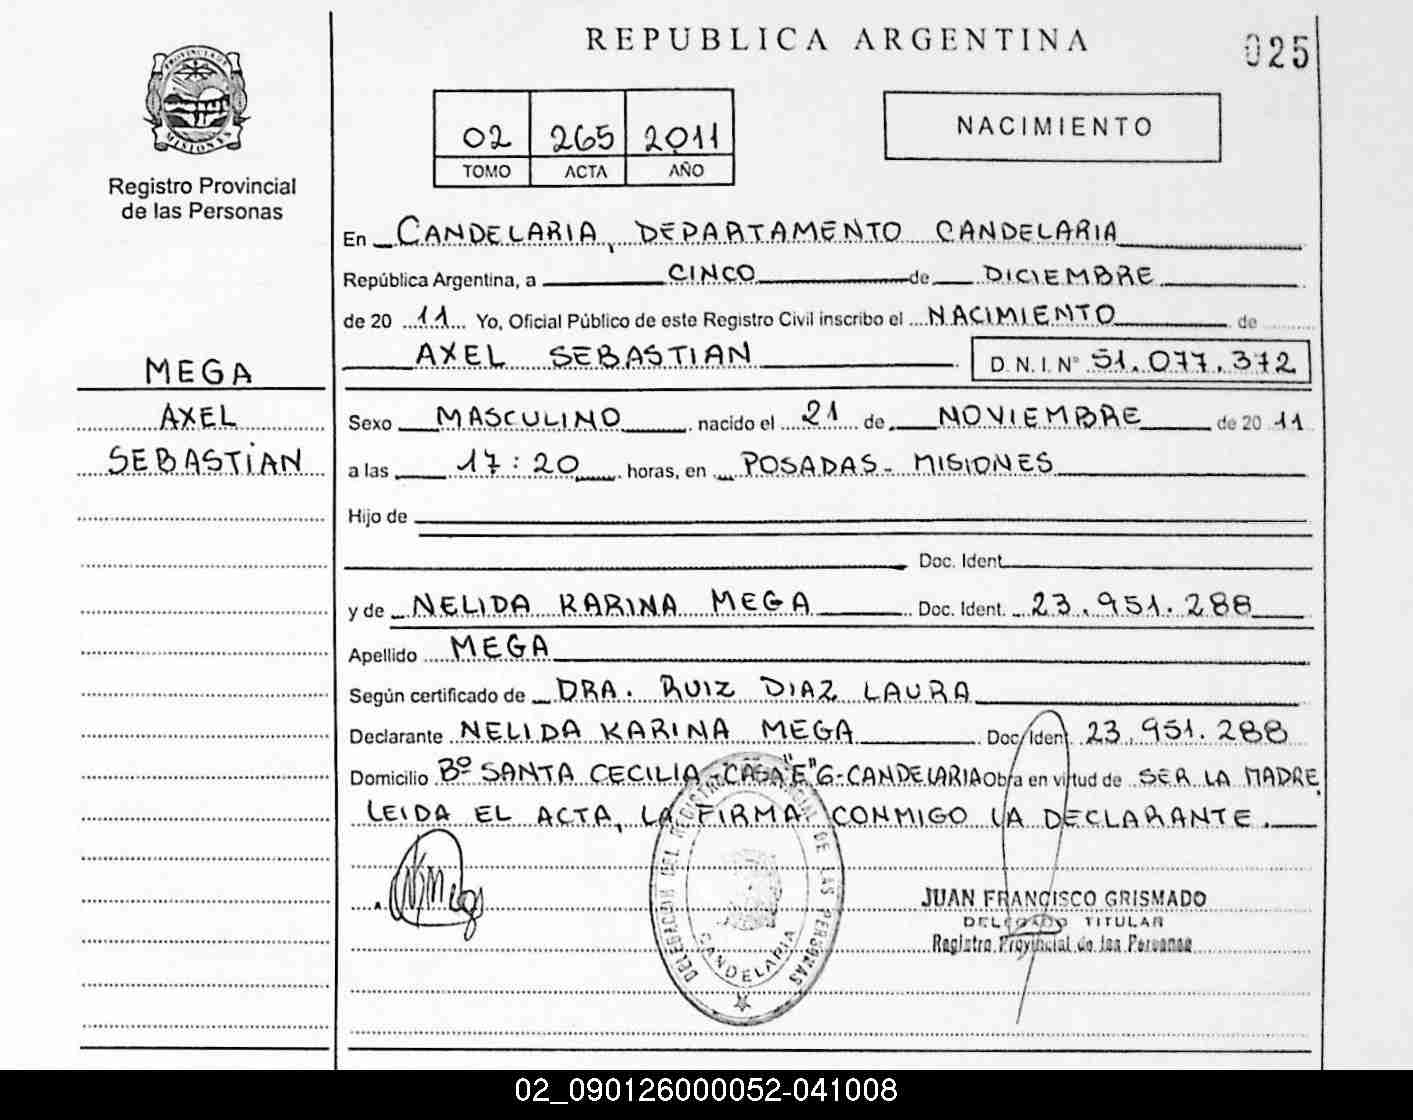 REPUBLICA ARGENTINA
025
PROVINCIA DE
MISIONES
Registro Provincial
de las Personas
02 265 2011
TOMO ACTA AÑO
NACIMIENTO
En CANDELARIA, DEPARTAMENTO CANDELARIA
República Argentina, a CINCO de DICIEMBRE
de 20 11 Yo, Oficial Público de este Registro Civil inscribo el NACIMIENTO de
MEGA
AXEL SEBASTIAN D.N.I.Nº 51.077.372
AXEL
Sexo MASCULINO nacido el 21 de NOVIEMBRE de 20 11
SEBASTIAN
a las 17:20 horas, en POSADAS - MISIONES
Hijo de
Doc. Ident.
y de NELIDA KARINA MEGA Doc. Ident. 23.951.288
Apellido MEGA
Según certificado de DRA. RUIZ DIAZ LAURA
Declarante NELIDA KARINA MEGA Doc. Ident. 23.951.288
Domicilio Bº SANTA CECILIA - CASA "E" 6 - CANDELARIA Obra en virtud de SER LA MADRE.
LEIDA EL ACTA, LA FIRMA CONMIGO LA DECLARANTE.
DELEGACION DEL REGISTRO PROVINCIAL DE LAS PERSONAS
CANDELARIA
JUAN FRANCISCO GRISMADO
DELEGADO TITULAR
Registro Provincial de las Personas
02_090126000052-041008